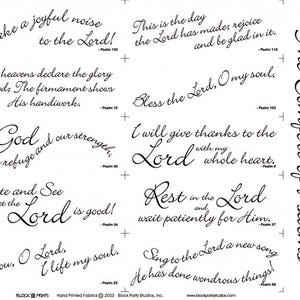 ake a joyful noise
to the Lord!
- Psalm 100
This is the day
the Lord has made; rejoice
and be glad in it.
- Psalm 118
heavens declare the glory
d; The firmament shows
His handiwork.
- Psalm 19
Bless the Lord, O my soul,
- Psalm 103
God
refuge and our strength,
- Psalm 46
I will give thanks to the
Lord with my
whole heart.
- Psalm 9
te and See
t the Lord is good!
- Psalm 34
Rest in the Lord
and
wait patiently for Him.
- Psalm 37
ou, O Lord,
I lift my soul.
- Psalm 25
Sing to the Lord a new song
He has done wondrous things!
- Psalm 98
BLOCK PARTY Hand Printed Fabrics © 2003 Block Party Studios, Inc. www.blockpartystudios.com